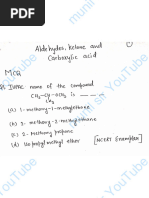 Aldehydes, ketone and
Carboxylic acid
MCQ
IUPAC name of the compound
CH3-CH-OCH3 is
CH3
(a) 1-methoxy-1-methylethane
(b) 2-methoxy-2-methylethane
(c) 2-methoxy propane
(d) Isopropyl methyl ether [NCERT Exemplar]
YouTube
sir YouTube